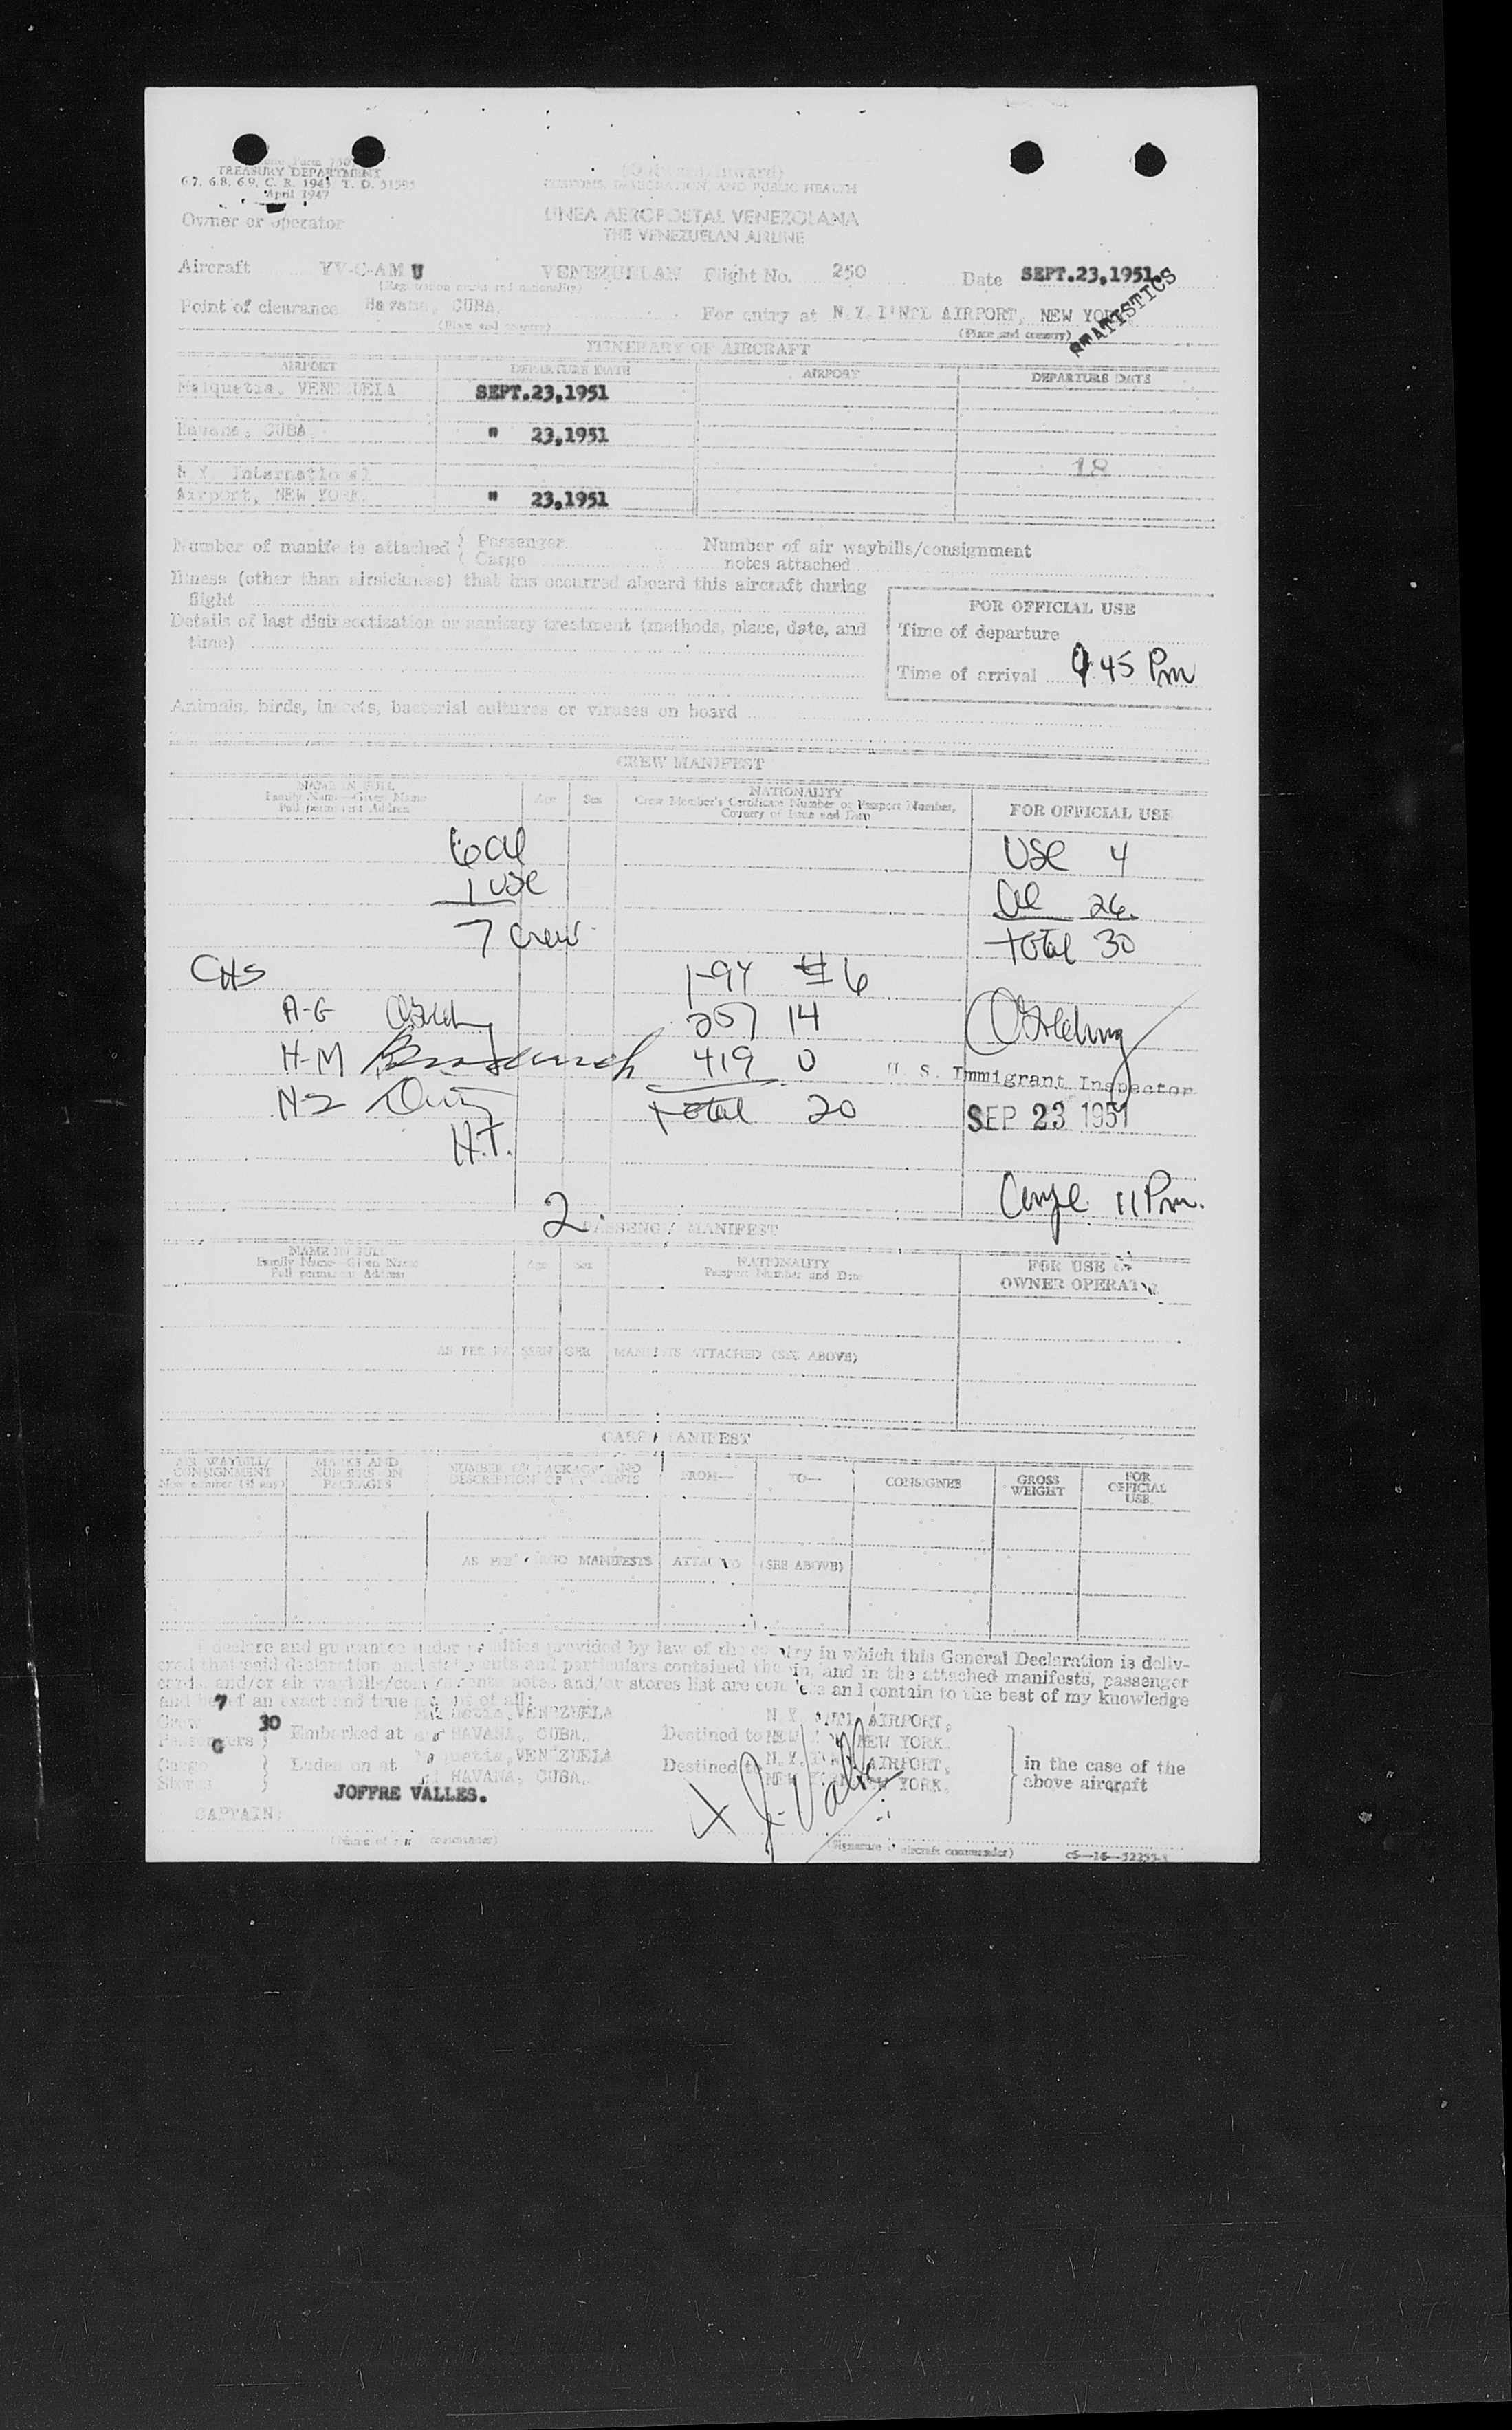 TREASURY DEPARTMENT
6.7, 6.8, 6.9, C. R. 1943; T. D.
April 1947
(Outward/Inward)
CUSTOMS, IMMIGRATION, AND PUBLIC HEALTH
Owner or operator LINEA AEROPOSTAL VENEZOLANA
THE VENEZUELAN AIRLINE
Aircraft YV-C-AMU VENEZUELAN Flight No. 250 Date SEPT.23,1951
(Registration marks and nationality)
STATISTICS
Point of clearance Havana, CUBA. For entry at N.Y. INT'L AIRPORT, NEW YORK
(Place and country) (Place and country)
ITINERARY OF AIRCRAFT
AIRPORT DEPARTURE DATE AIRPORT DEPARTURE DATE
Maiquetia, VENEZUELA SEPT.23,1951
Havana, CUBA. " 23,1951
18
N.Y. International
Airport, NEW YORK. " 23,1951
Number of manifests attached { Passenger Number of air waybills/consignment
{ Cargo notes attached
Illness (other than airsickness) that has occurred aboard this aircraft during
flight
FOR OFFICIAL USE
Details of last disinsectization or sanitary treatment (methods, place, date, and
time)
Time of departure
Time of arrival 9 45 Pm
Animals, birds, insects, bacterial cultures or viruses on board
CREW MANIFEST
NAME IN FULL
Family Name—Given Name
Full permanent Address
Age Sex
NATIONALITY
Crew Member's Certificate Number or Passport Number,
Country of Issue and Date
FOR OFFICIAL USE
6 al USC 4
1 USC al 26.
7 Crew Total 30
CHS I-94 # 6
A-G 257 14
H-M 419 0 U. S. Immigrant Inspector
N-Z Total 20 SEP 23 1951
H.T.
11 Pm.
2.
PASSENGER MANIFEST
NAME IN FULL
Family Name—Given Name
Full permanent Address
Age Sex
NATIONALITY
Passport Number and Date
FOR USE OF
OWNER OPERATOR
AS PER PASSENGER MANIFESTS ATTACHED (SEE ABOVE)
CARGO MANIFEST
AIR WAYBILL/
CONSIGNMENT
Note number (if any)
MARKS AND
NUMBERS ON
PACKAGES
NUMBER OF PACKAGES AND
DESCRIPTION OF CONTENTS
FROM— TO— CONSIGNEE
GROSS
WEIGHT
FOR
OFFICIAL
USE
AS PER CARGO MANIFESTS ATTACHED (SEE ABOVE)
I declare and guarantee under penalties provided by law of the country in which this General Declaration is deliv-
ered that said declaration, and statements and particulars contained therein, and in the attached manifests, passenger
and/or air waybills/consignments notes and/or stores list are complete and contain to the best of my knowledge
and belief an exact and true account of all:
Crew 7
Passengers 30 } Embarked at Maiquetia, VENEZUELA and HAVANA, CUBA. Destined to N.Y. INTL AIRPORT, NEW YORK, NEW YORK.
Cargo G
Stores } Laden on at Maiquetia, VENEZUELA and HAVANA, CUBA. Destined to N.Y. INTL AIRPORT, NEW YORK, NEW YORK.
} in the case of the
above aircraft
JOFFRE VALLES.
CAPTAIN:
X J. Valles
(Name of aircraft commander) (Signature of aircraft commander)